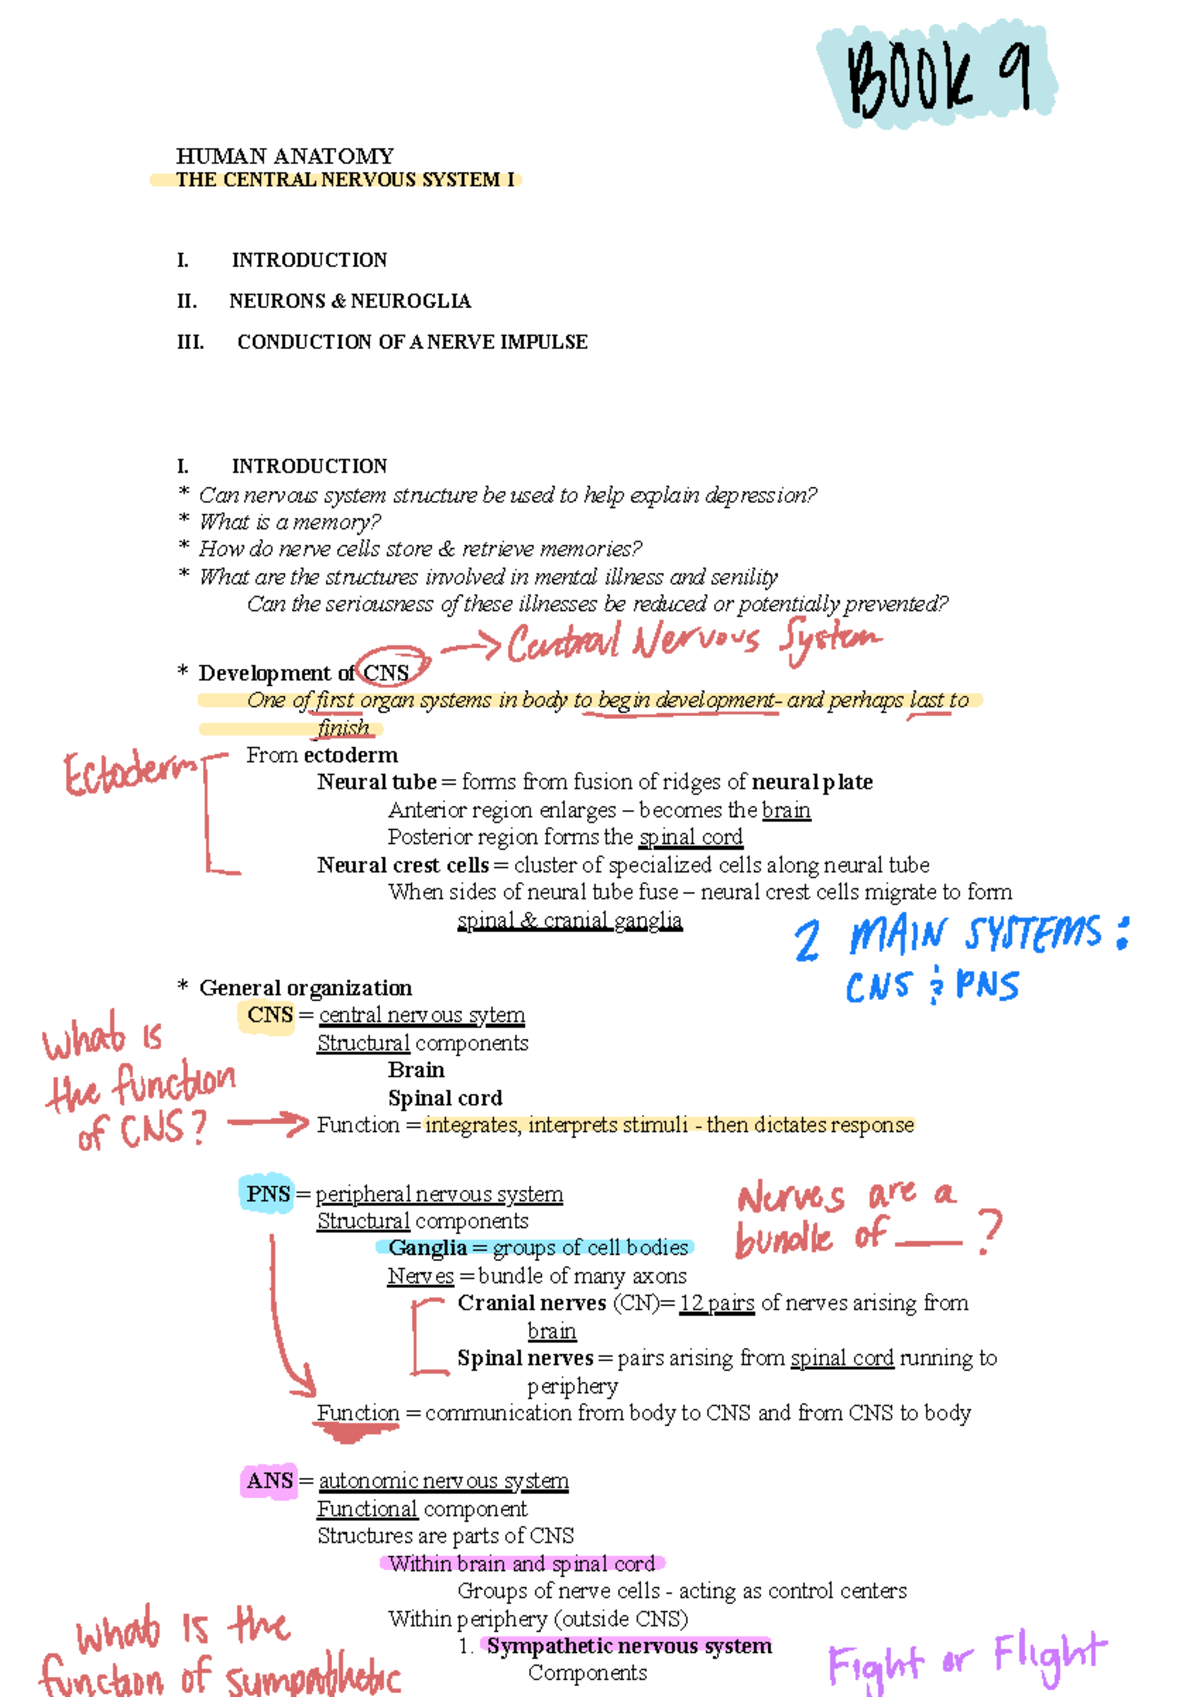 BOOK 9
HUMAN ANATOMY
THE CENTRAL NERVOUS SYSTEM I
I. INTRODUCTION
II. NEURONS & NEUROGLIA
III. CONDUCTION OF A NERVE IMPULSE
I. INTRODUCTION
* Can nervous system structure be used to help explain depression?
* What is a memory?
* How do nerve cells store & retrieve memories?
* What are the structures involved in mental illness and senility
Can the seriousness of these illnesses be reduced or potentially prevented?
Central Nervous System
* Development of CNS
One of first organ systems in body to begin development- and perhaps last to
finish
Ectoderm
From ectoderm
Neural tube = forms from fusion of ridges of neural plate
Anterior region enlarges – becomes the brain
Posterior region forms the spinal cord
Neural crest cells = cluster of specialized cells along neural tube
When sides of neural tube fuse – neural crest cells migrate to form
spinal & cranial ganglia
2 MAIN SYSTEMS:
CNS & PNS
* General organization
CNS = central nervous sytem
Structural components
Brain
Spinal cord
What is
the function
of CNS?
Function = integrates, interprets stimuli - then dictates response
PNS = peripheral nervous system
Structural components
Ganglia = groups of cell bodies
Nerves = bundle of many axons
Nerves are a
bundle of ___ ?
Cranial nerves (CN)= 12 pairs of nerves arising from
brain
Spinal nerves = pairs arising from spinal cord running to
periphery
Function = communication from body to CNS and from CNS to body
ANS = autonomic nervous system
Functional component
Structures are parts of CNS
Within brain and spinal cord
Groups of nerve cells - acting as control centers
Within periphery (outside CNS)
1. Sympathetic nervous system
Components
What is the
function of sympathetic
Fight or Flight